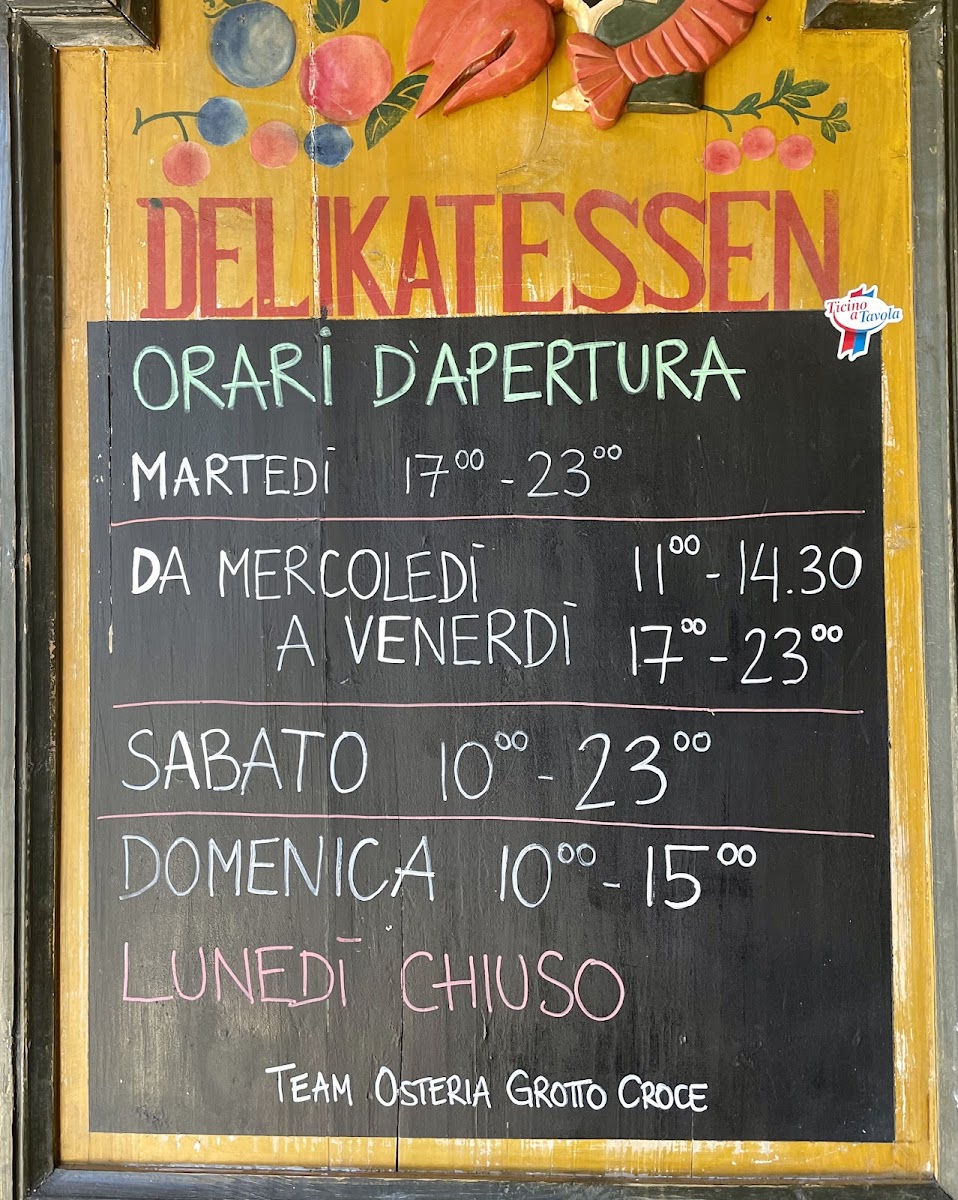 DELIKATESSEN
Ticino
a Tavola
ORARI D'APERTURA
MARTEDÌ 17⁰⁰ - 23⁰⁰
DA MERCOLEDÌ 11⁰⁰ - 14.30
A VENERDÌ 17⁰⁰ - 23⁰⁰
SABATO 10⁰⁰ - 23⁰⁰
DOMENICA 10⁰⁰ - 15⁰⁰
LUNEDÌ CHIUSO
TEAM OSTERIA GROTTO CROCE